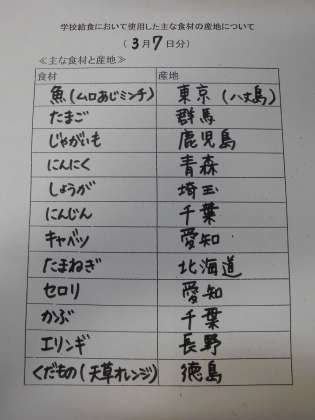 学校給食において使用した主な食材の産地について
(3月7日分)
≪主な食材と産地≫
食材 産地
魚(ムロあじミンチ) 東京(八丈島)
たまご 群馬
じゃがいも 鹿児島
にんにく 青森
しょうが 埼玉
にんじん 千葉
キャベツ 愛知
たまねぎ 北海道
セロリ 愛知
かぶ 千葉
エリンギ 長野
くだもの(天草オレンジ) 徳島